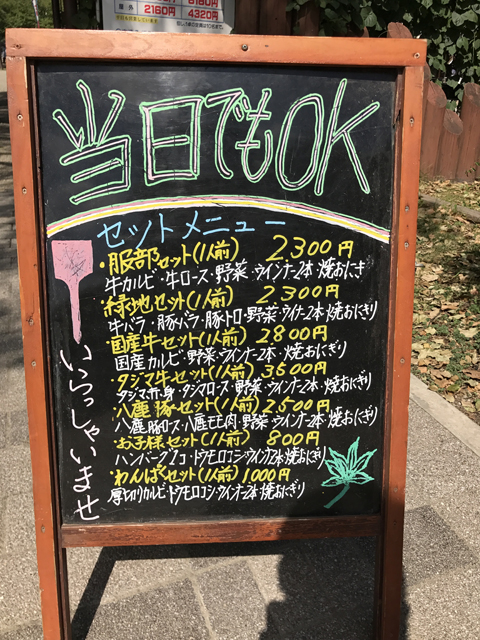 2160円
4320円
当日でもOK
セットメニュー
・服部セット(1人前) 2.300円
牛カルビ・牛ロース・野菜・ウインナー2本・焼おにぎり
・緑地セット(1人前) 2300円
牛バラ・豚バラ・豚トロ・野菜・ウイナー2本・焼おにぎり
・国産牛セット(1人前) 2800円
国産カルビ・野菜・ウインナー2本・焼おにぎり
・タジマ牛セット(1人前) 3500円
タジマ赤身・タジマロース・野菜・ウインナー2本・焼おにぎり
・八鹿豚セット(1人前) 2,500円
八鹿豚ロース・八鹿モモ肉・野菜・ウインナー2本・焼おにぎり
・お子様セット(1人前) 800円
ハンバーグ1コ・トウモロコシ・ウインナー2本・焼おにぎり
・わんぱくセット(1人前) 1000円
厚切りカルビ・トウモロコシ・ウインナー2本・焼おにぎり
いらっしゃいませ